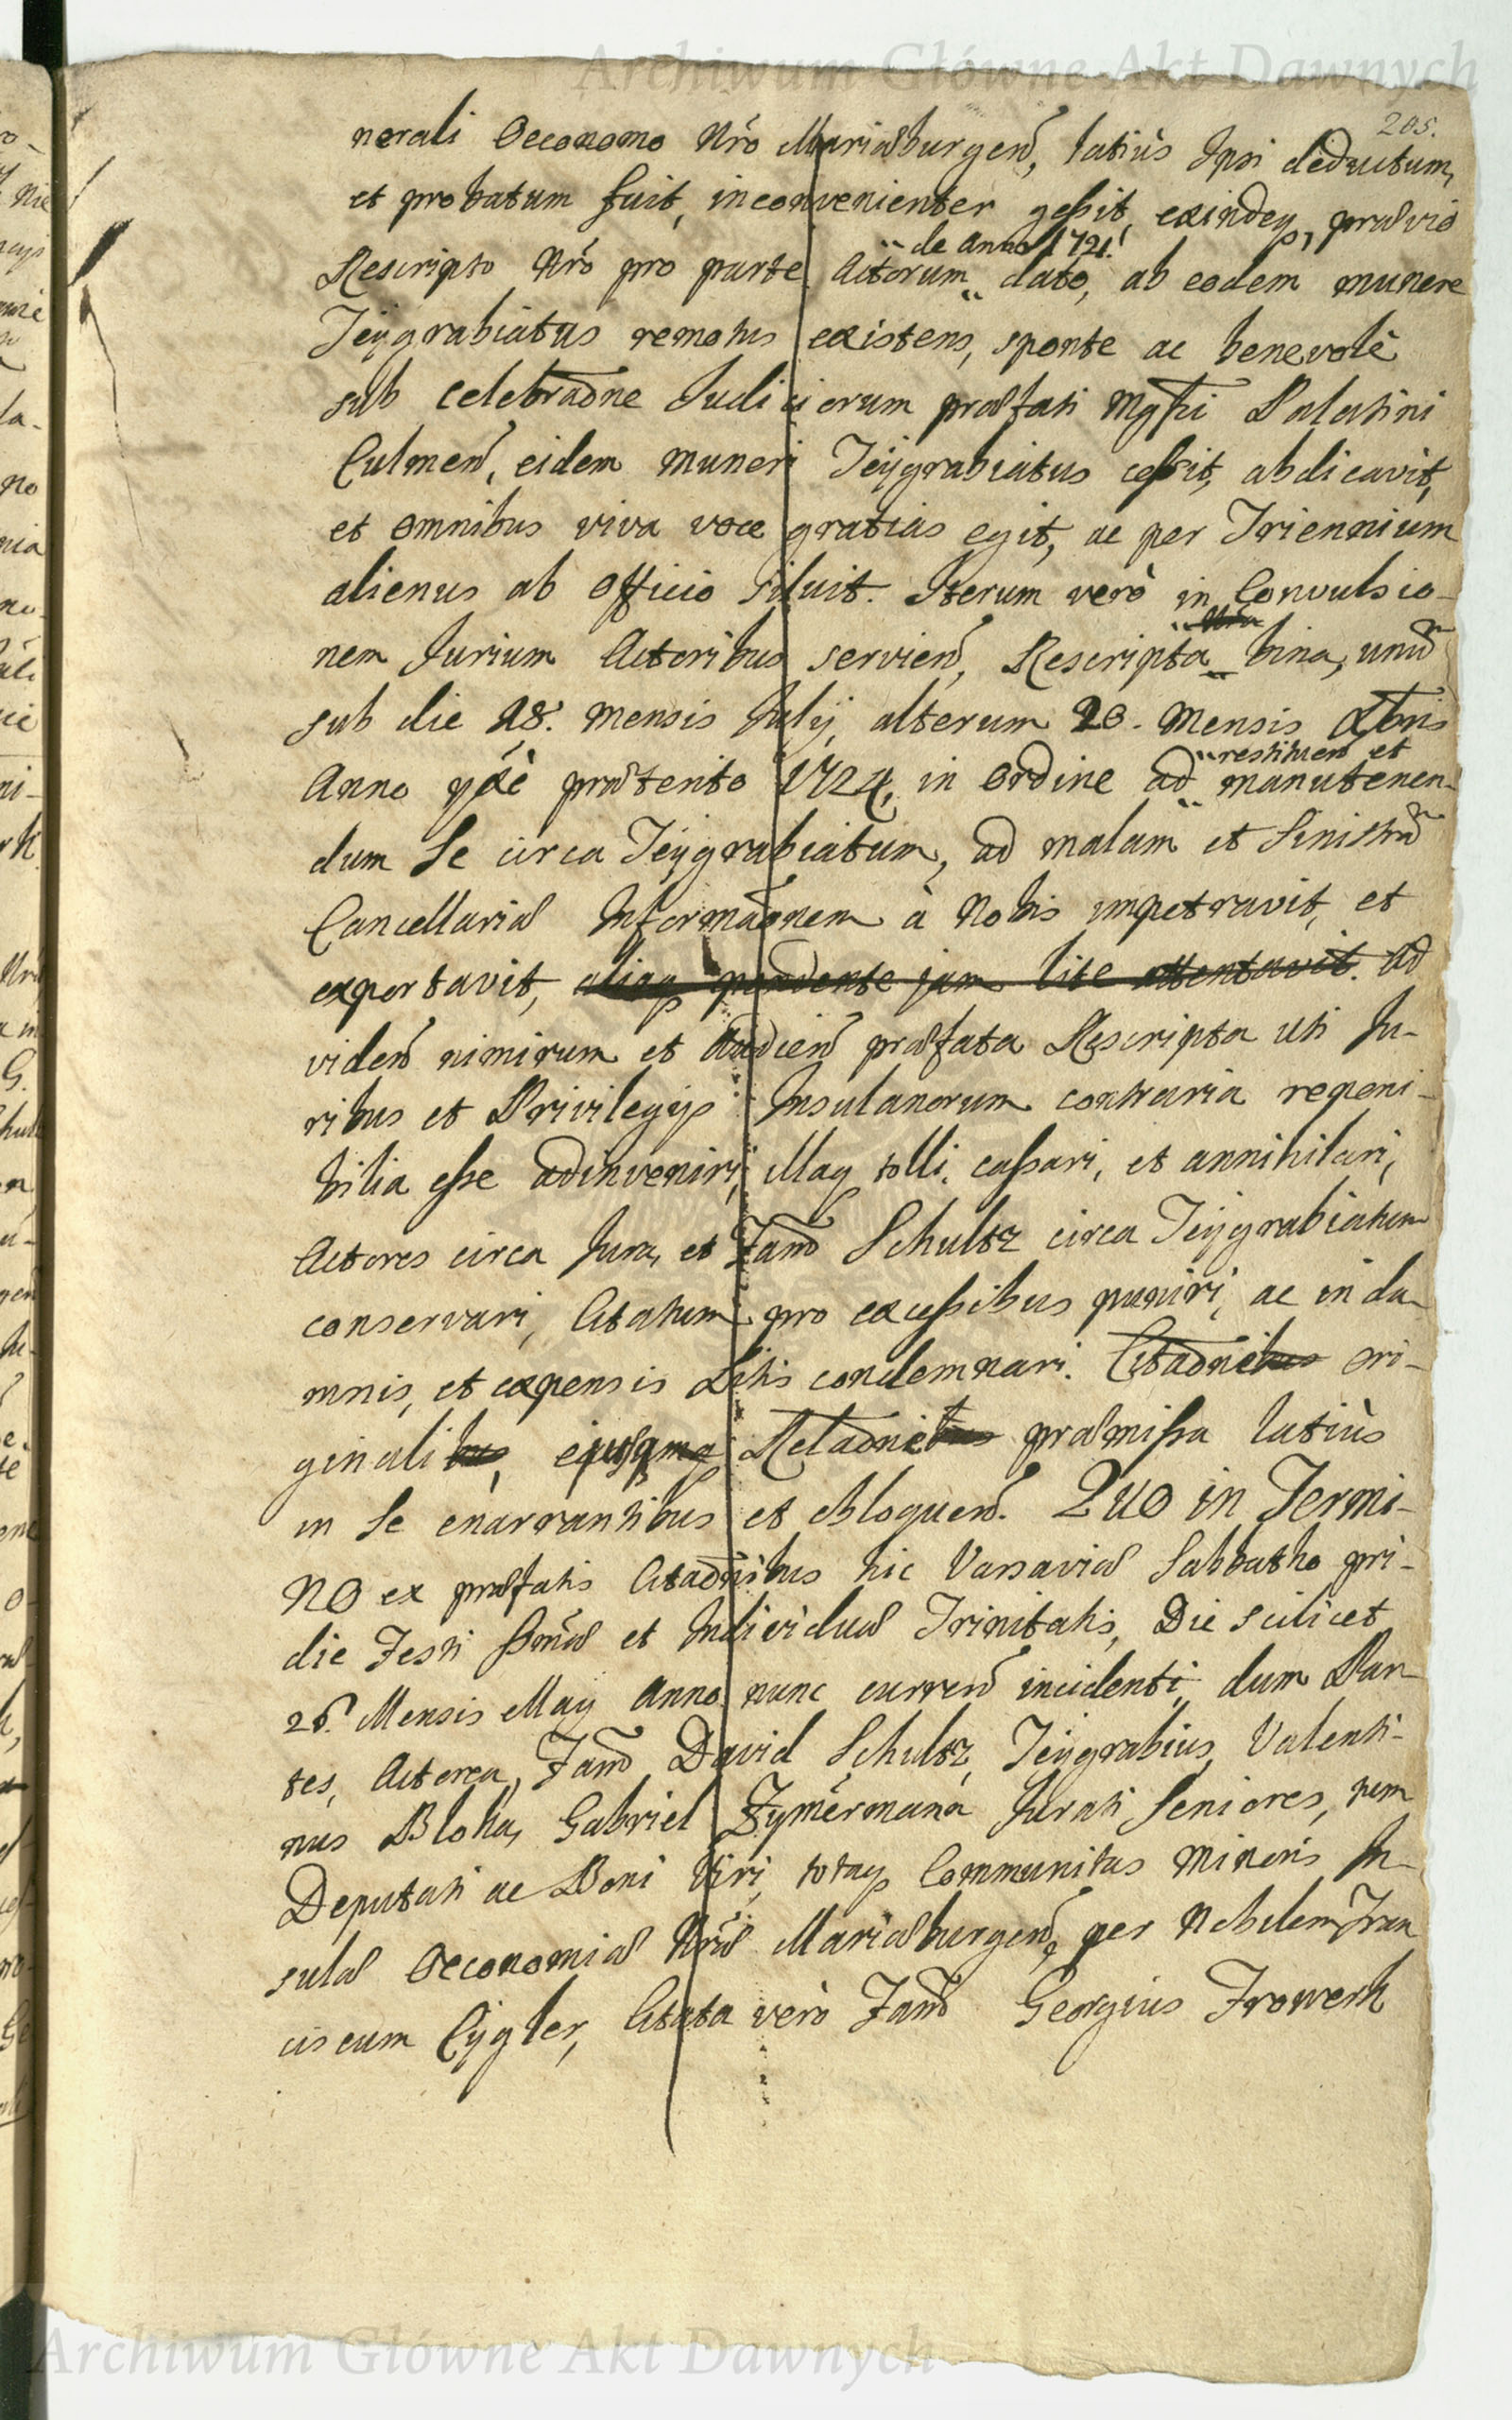 Archiwum Główne Akt Dawnych
205.
nerali Oeconomo Nro Mariæburgen, latiùs Ipsi deductum,
et probatum fuit, inconvenienter gessit, exindeq, prævio
de Anno 1721.
Rescripto Nro pro parte Actorum dato, ab eodem munere
Teygrabiatus remotus existens, sponte ac benevolè
sub celebraone Judiciorum præfati Mgfci Palatini
Culmen, eidem muneri Teygrabiatus cessit, abdicavit,
et omnibus viva voce gratias egit, ac per Triennium
alienus ab officio siluit. Iterum verò in Convulsio-
Nra
nem Jurium Actoribus servien, Rescripta bina, unu
sub die 28. mensis July, alterum 20. Mensis Xbris
restituen et
Anno pxè præterito 1724, in ordine ad manutenen-
dum Se circa Teygrabiatum, ad malam et Sinistra
Cancellariæ Informaonem à Nobis impetravit, et
exportavit, aliaq pendente jam lite attentavit. Ad
viden nimirum et Audien præfata Rescripta uti Ju-
ribus et Privilegys Insulanorum contraria reperi-
bilia esse adinveniri, Eaq tolli, cassari, et annihilari,
Actores circa Jura, et Fam Schultz circa Teygrabiatum
conservari, Citatum pro excessibus puniri, ac in da-
mnis, et expensis Litis condemnari. Citaonibus ori-
ginalibus, ejusqmq Relaonibus præmissa latiùs
in Se enarrantibus et eloquen. QUO in Termi-
NO ex præfatis Citaonibus hic Varsaviæ Sabbatho pri-
die Festi Ssmæ et Individuæ Trinitatis, Die scilicet
26. Mensis May Anno nunc curren incidenti, dum Par-
tes, Actorea, Fam David Schultz, Teygrabius, Valenti-
nus Blohm, Gabriel Zymermann Jurati Seniores, tum
Deputati ac Boni Viri, totaq Communitas Minoris In-
sulæ Oeconomiæ Nræ Mariæburgen, per Nobilem Fran
ciscum Cygler, Citata verò Fam Georgius Frowerk
Archiwum Główne Akt Dawnych